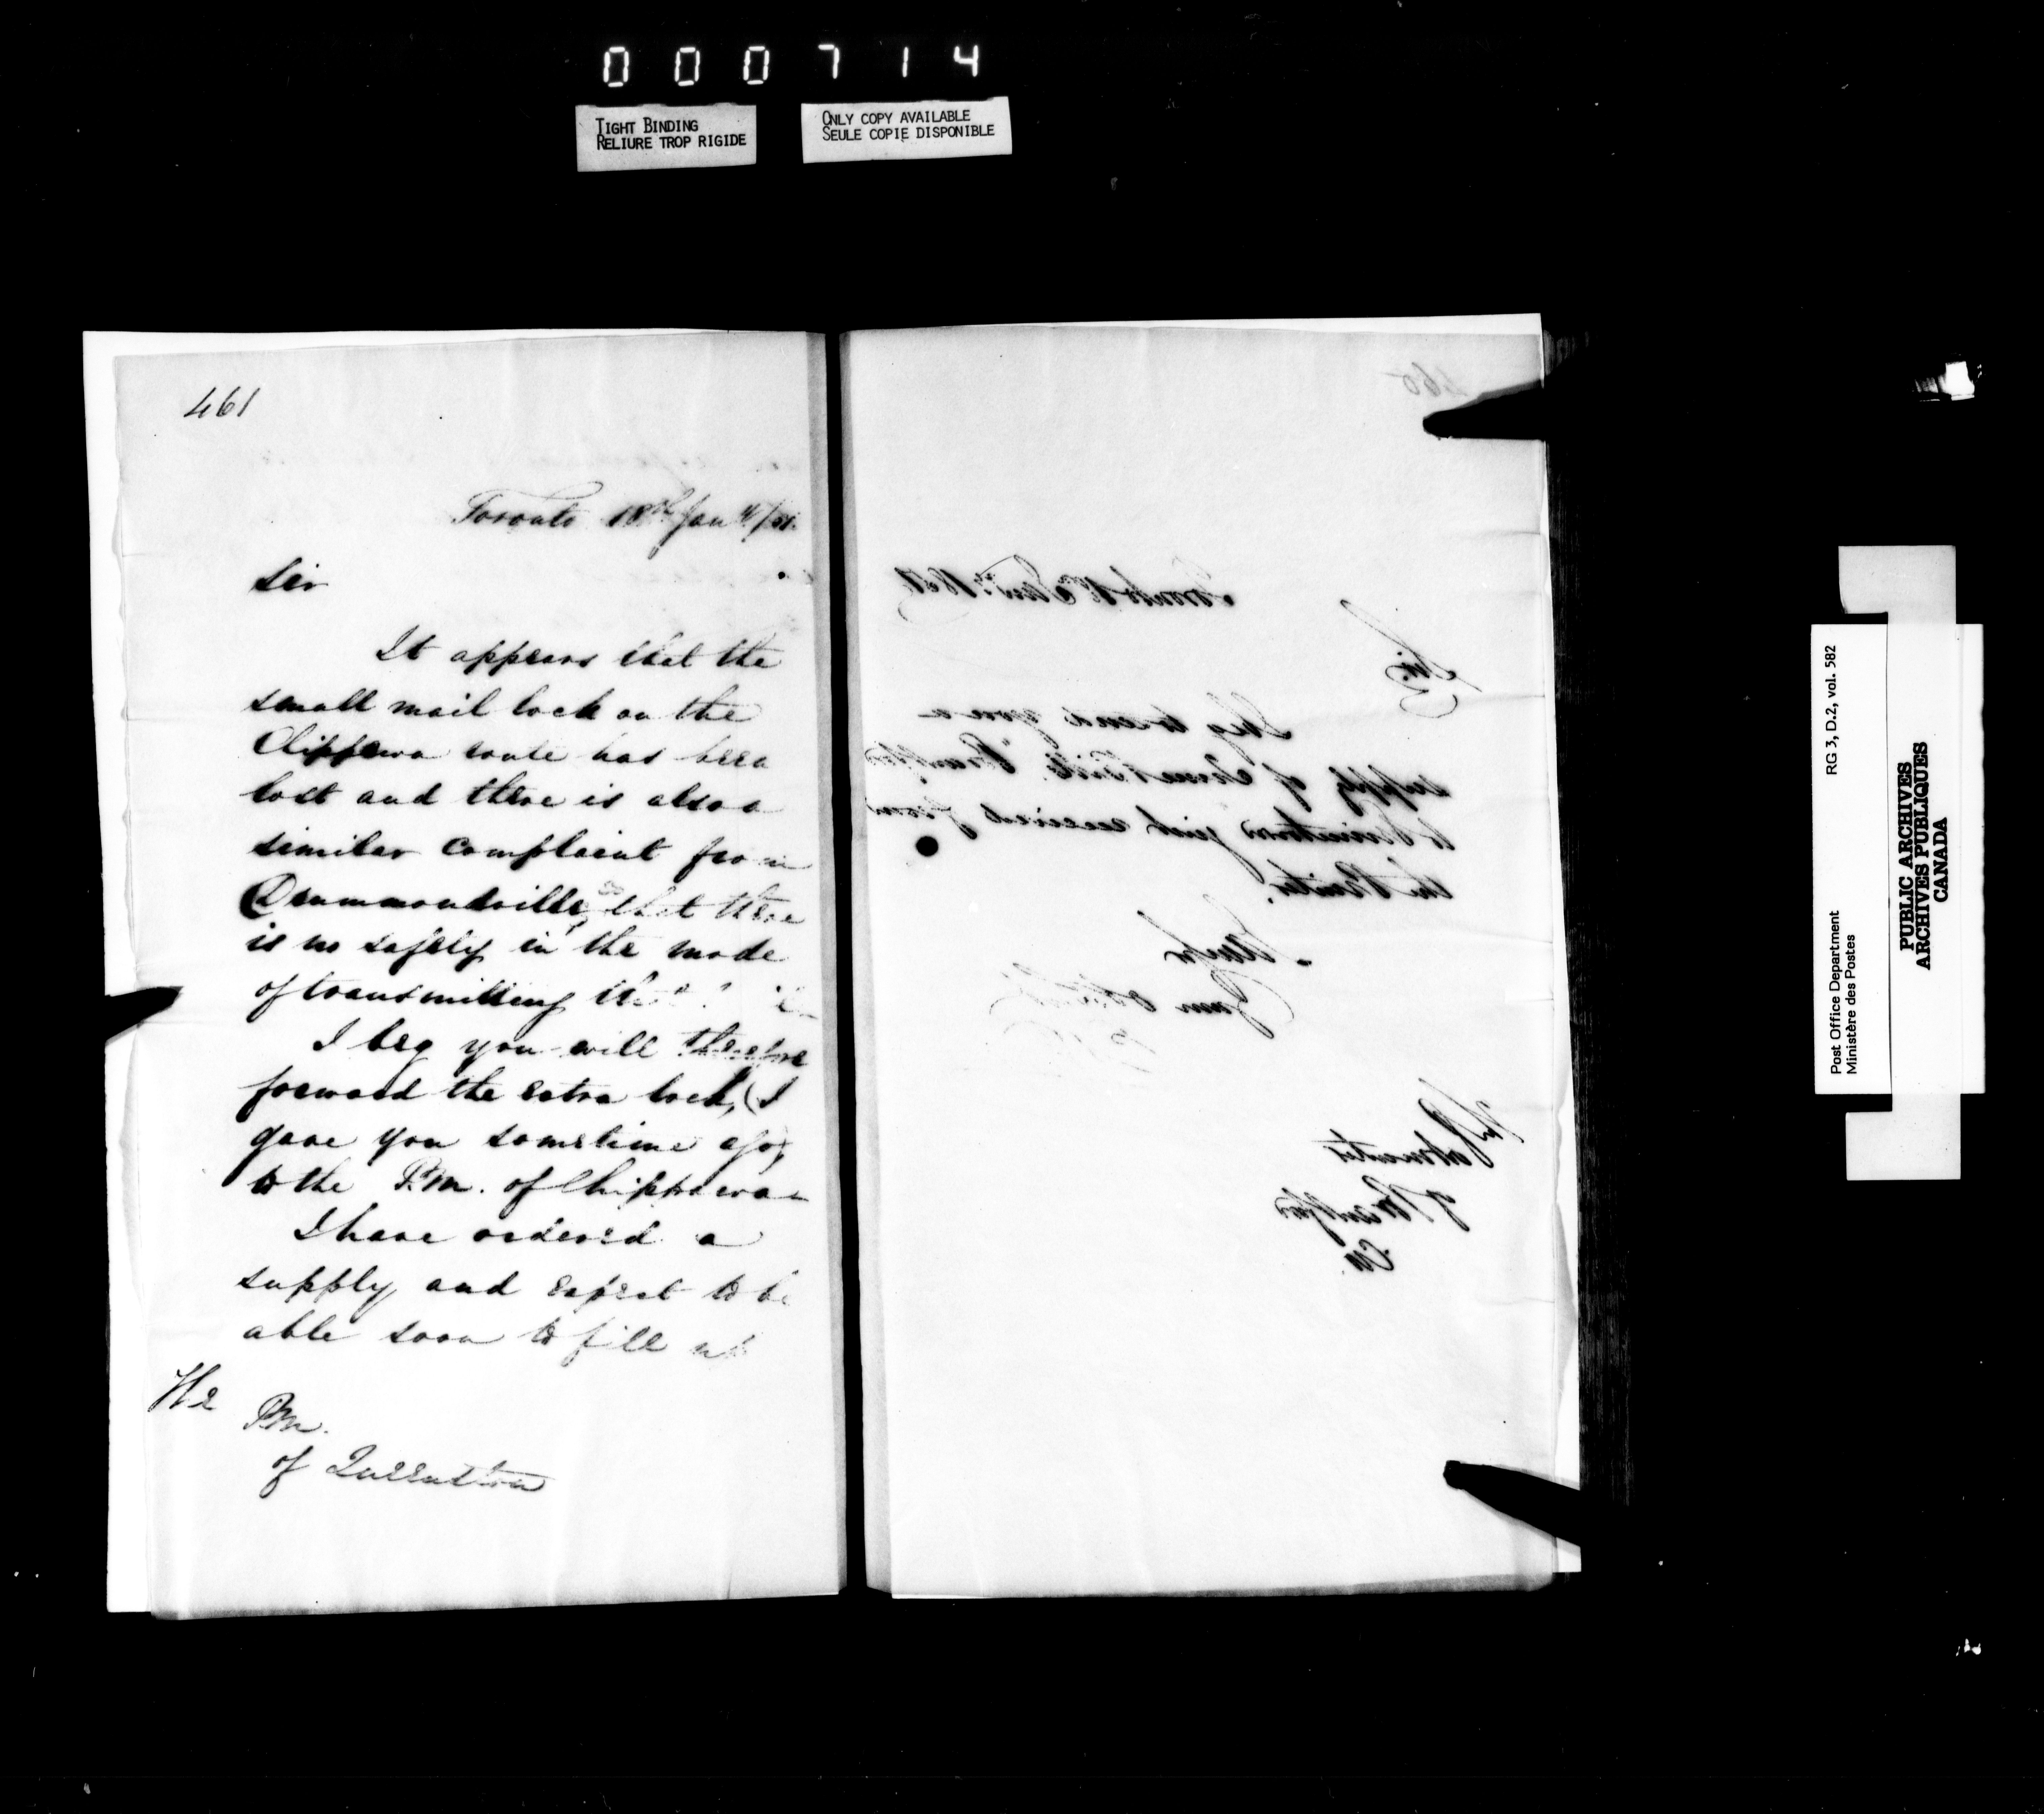 000714
TIGHT BINDING
RELIURE TROP RIGIDE
ONLY COPY AVAILABLE
SEULE COPIE DISPONIBLE
461
Toronto 18th Jany /51
Sir
It appears that the
small mail lock on the
Chippewa route has been
lost and there is also a
similar complaint from
Drummondville, that there
is no safety in the mode
of transmitting the
I beg you will therefore
forward the extra lock, (I
gave you sometime ago)
to the P.M. of Chippewa
I have ordered a
supply and expect to be
able soon to fill up
The
P.M.
of Queenston
460
Sir
I beg to send you a
supply of
to just received from
the Printer.
The Postmaster
of Brantford
CW.
Post Office Department
Ministère des Postes
RG 3, D.2, vol. 582
PUBLIC ARCHIVES
ARCHIVES PUBLIQUES
CANADA